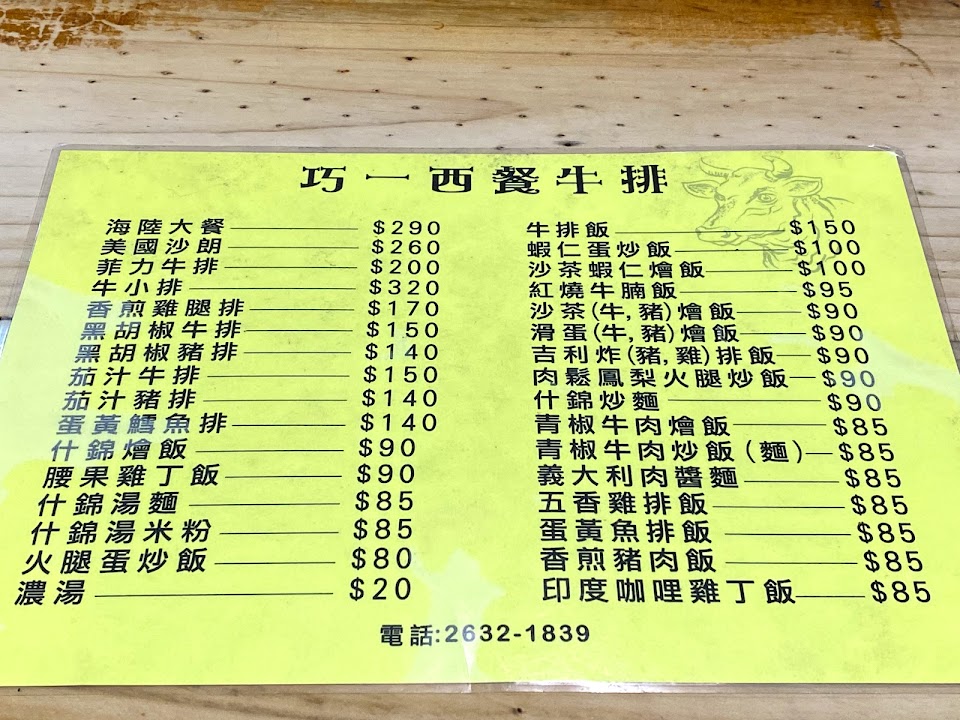 巧一西餐牛排
海陸大餐 $290
美國沙朗 $260
菲力牛排 $200
牛小排 $320
香煎雞腿排 $170
黑胡椒牛排 $150
黑胡椒豬排 $140
茄汁牛排 $150
茄汁豬排 $140
蛋黃鱈魚排 $140
什錦燴飯 $90
腰果雞丁飯 $90
什錦湯麵 $85
什錦湯米粉 $85
火腿蛋炒飯 $80
濃湯 $20
牛排飯 $150
蝦仁蛋炒飯 $100
沙茶蝦仁燴飯 $100
紅燒牛腩飯 $95
沙茶(牛,豬)燴飯 $90
滑蛋(牛,豬)燴飯 $90
吉利炸(豬,雞)排飯 $90
肉鬆鳳梨火腿炒飯 $90
什錦炒麵 $90
青椒牛肉燴飯 $85
青椒牛肉炒飯(麵) $85
義大利肉醬麵 $85
五香雞排飯 $85
蛋黃魚排飯 $85
香煎豬肉飯 $85
印度咖哩雞丁飯 $85
電話:2632-1839